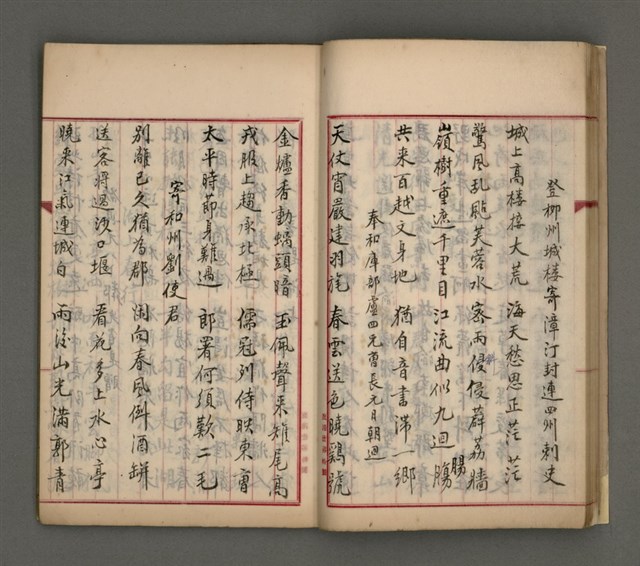 登柳州城楼寄漳汀封連四州刺史
城上高楼接大荒 海天愁思正茫茫
驚風乱颭芙蓉水 密雨侵侵薜荔墻
斜
嶺樹重遮千里目 江流曲似九迴腸
腸
共来百越文身地 猶自音書滞一鄉
奉和庫部盧四兄曹長元日朝迴
天仗宵嚴建羽旄 春雲送色曉鷄號
金爐香動螭頭暗 玉佩聲来雉尾高
戎服上趨承北極 儒冠列侍映東曹
太平時節身難遇 郎署何須歎二毛
寄和州劉使君
別離已久猶為郡 閑向春風倒酒缾
送客特過沙口堰 看花多上水心亭
曉来江氣連城白 雨後山光滿郭青